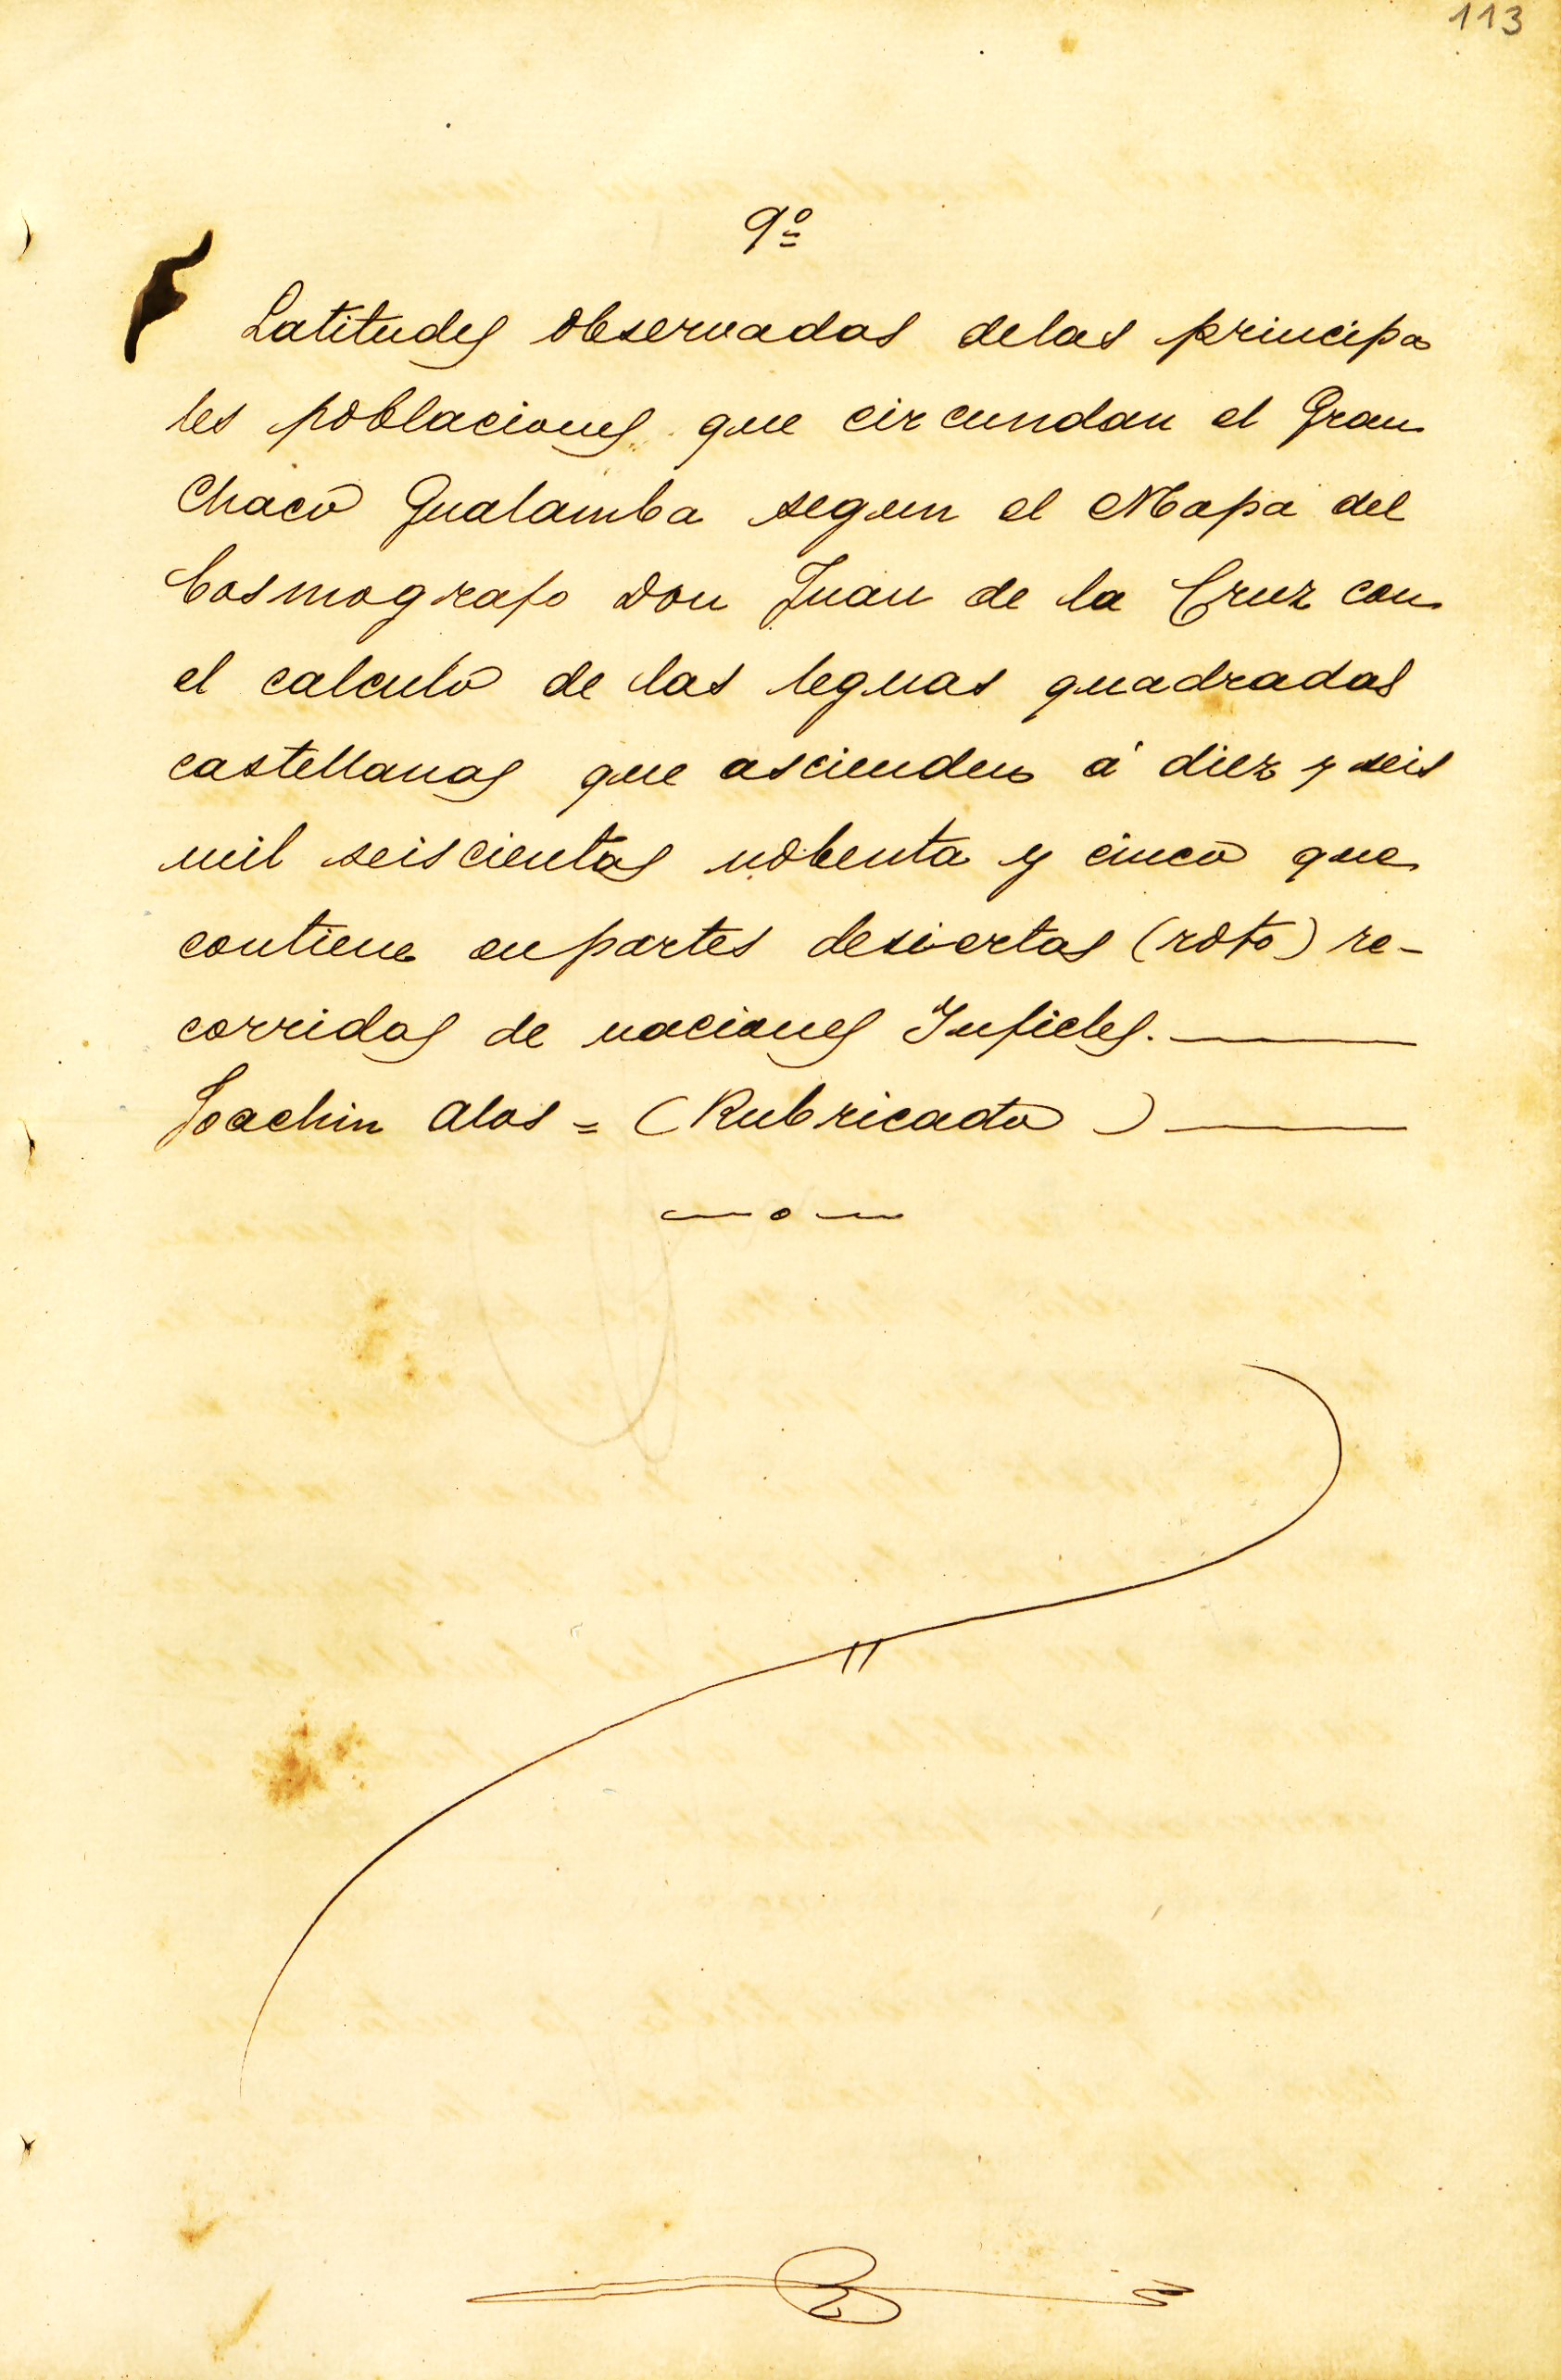 113
9º
Latitudes observadas delas principa
les poblaciones que circundan el Gran
Chaco Gualamba segun el Mapa del
Cosmografo Don Juan de la Cruz con
el calculo de las leguas quadradas
castellanas que ascienden á diez y seis
mil seiscientas nobenta y cinco que
contiene en partes desiertas (roto) re-
corridas de naciones Infieles.
Joachin Alos = (Rubricado)